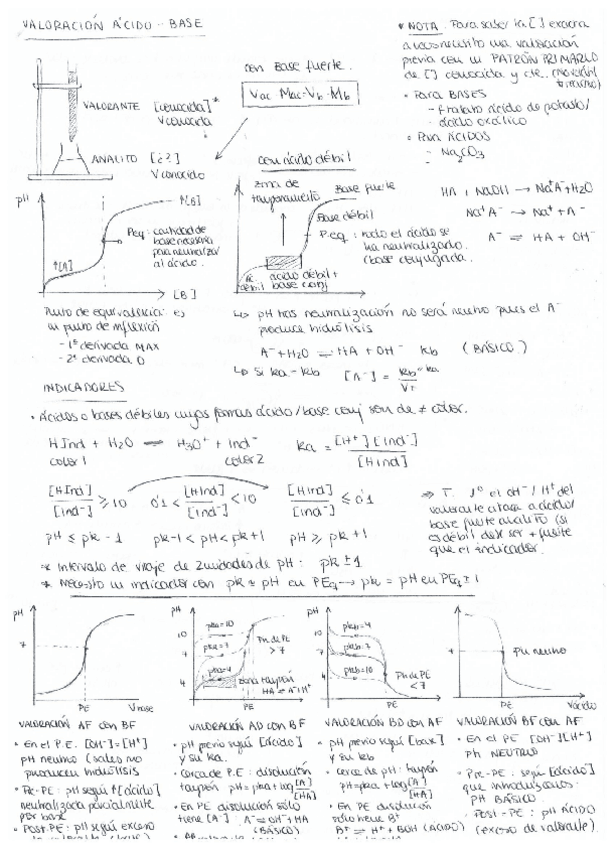 VALORACIÓN ÁCIDO - BASE
* NOTA Para saber la [ ] exacta
se necesita una valoración
previa con un PATRÓN PRIMARIO
de [ ] conocida y cte.
• Para BASES
- ftalato ácido de potasio/
ácido oxálico
• Para ÁCIDOS
- Na2CO3
con Base fuerte.
Vac · Mac = Vb · Mb
VALORANTE [conocida]*
V conocida
ANALITO [¿?]
V conocido
con ácido débil
pH
↑[B]
P.eq: cantidad de
base necesaria
para neutralizar
al ácido.
↑[A]
[B]
zona de
taponamiento
Base fuerte
Base débil
P.eq: todo el ácido se
ha neutralizado.
(base conjugada
ác. débil
ácido débil +
base conj
HA + NaOH → Na+A- + H2O
Na+A- → Na+ + A-
A- ⇌ HA + OH-
Punto de equivalencia: es
un punto de inflexión
- 1ª derivada MAX
- 2ª derivada 0
↳ pH tras neutralización no será neutro pues el A-
produce hidrólisis
A- + H2O ⇌ HA + OH- kb (BÁSICO)
↳ Si ka - kb [A-] =
INDICADORES
• Ácidos o bases débiles cuyas formas ácido/base conj son de ≠ color.
HInd + H2O ⇌ H3O+ + Ind-
color 1 color 2
ka = [H+][Ind-] / [HInd]
[HInd] / [Ind-] ≥ 10 0'1 < [HInd] / [Ind-] < 10 [HInd] / [Ind-] ≤ 0'1
pH ≤ pk - 1 pk-1 < pH < pk+1 pH ≥ pk + 1
el OH- / H+ del
valorante ataca a ácido/
base fuerte analito (si
es débil debe ser + fuerte
que el indicador.
* Intervalo de viraje de 2 unidades de pH: pk ± 1
* Necesito un indicador con pk ≈ pH en PEq → pk = pH en PEq ± 1
pH
7
PE
V base
pH
10
7
4
pka=10
pka=7
pka=4
PH de PE
> 7
zona tapón
HA ⇌ A- + H+
PE
pH
10
7
4
pkb=4
pkb=7
pkb=10
PH de PE
< 7
PE
pH
7
PH neutro
PE
V ácido
VALORACIÓN AF con BF
• En el P.E. [OH-]=[H+]
pH neutro (sales no
producen hidrólisis
• Pre-PE: pH según ↑[ácido]
neutralizada parcialmente
por base
• POST-PE: pH según exceso
VALORACIÓN AD con BF
• pH previo según [ácido]
y su ka.
• Cerca de P.E: disolución
tampón pH=pka+log [A-] / [HA]
• En PE disolución sólo
tiene [A-]: A- ⇌ OH- + HA
(BÁSICO)
VALORACIÓN BD con AF
• pH previo según [base]
y su kb
• cerca de pH: tapón
pH=pka+log [A-] / [HA]
• En PE disolución
sólo tiene B+
B+ ⇌ H+ + BOH (ÁCIDO)
VALORACIÓN BF con AF
• En el PE [OH-][H+]
Ph NEUTRO
• Pre-PE: según [ácido]
que introduzcamos.
PH BÁSICO.
• POST-PE: pH ÁCIDO
(exceso de valorante).